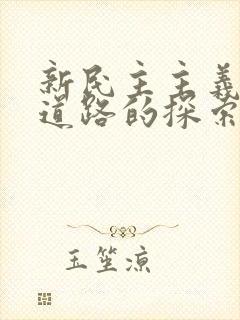 新民主主義
道路的探索
王笙凉